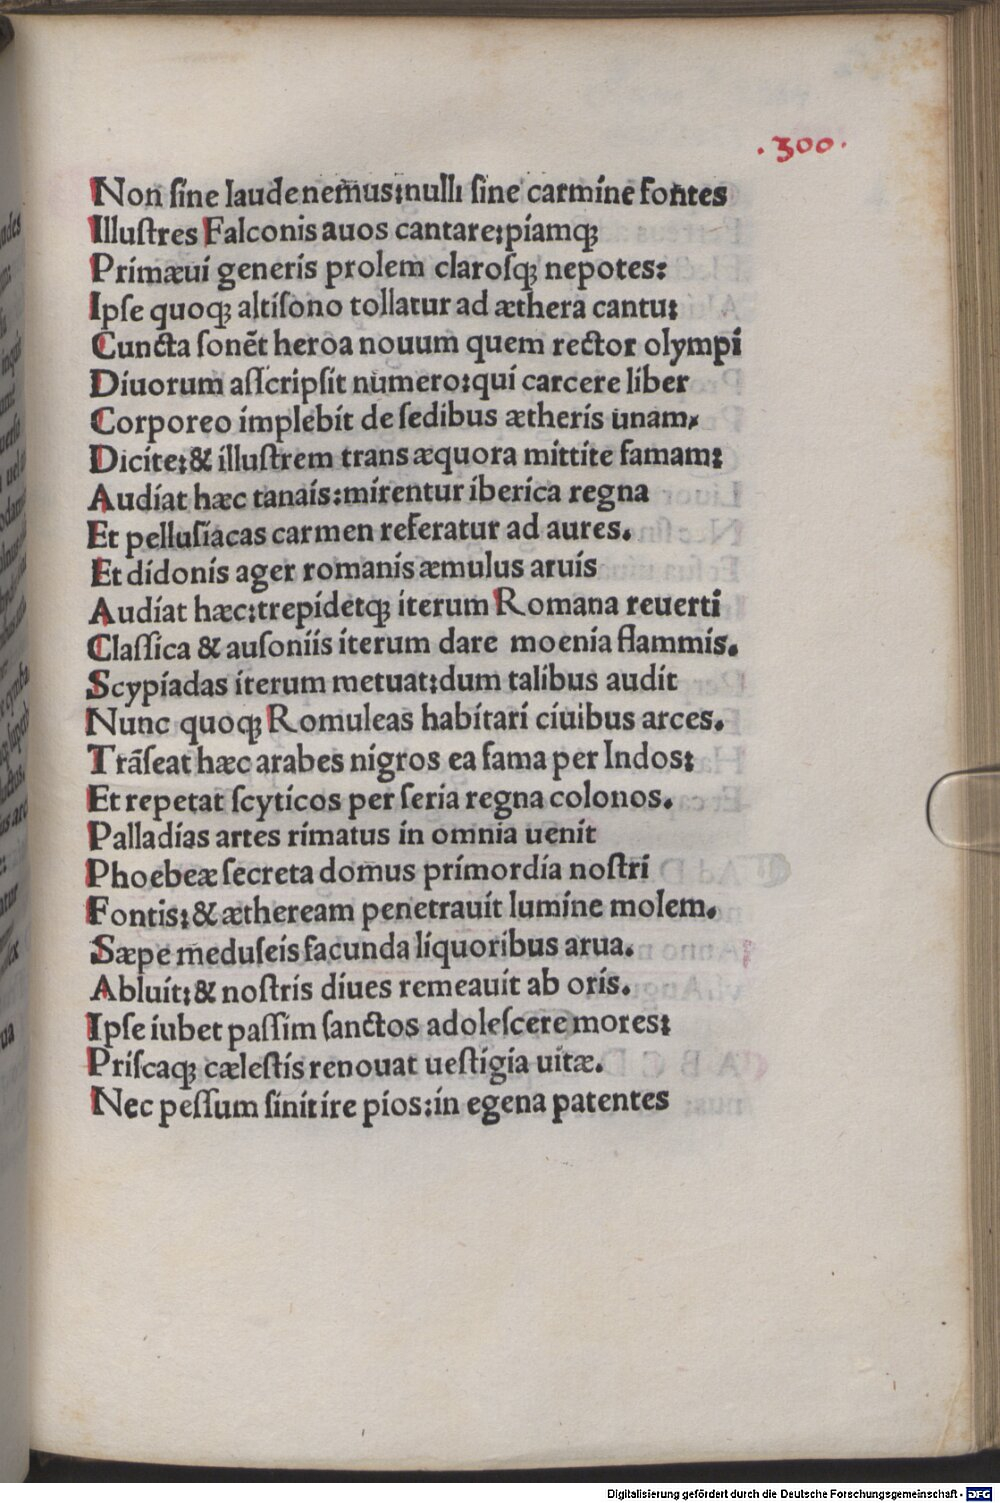 .300.
Non ſine laude nem̃us:nulli ſine carmine fontes
Illuſtres Falconis auos cantare:piamqꝫ
Primæui generis prolem claroſqꝫ nepotes:
Ipſe quoqꝫ altiſono tollatur ad æthera cantu:
Cuncta ſonẽt heroa nouum quem rector olympi
Diuorum aſſcripſit numero:qui carcere liber
Corporeo implebit de ſedibus ætheris unam,
Dicite:& illuſtrem trans æquora mittite famam:
Audiat hæc tanais:mirentur iberica regna
Et pelluſiacas carmen referatur ad aures.
Et didonis ager romanis æmulus aruis
Audiat hæc:trepidetqꝫ iterum Romana reuerti
Claſſica & auſoniis iterum dare moenia flammis.
Scypiadas iterum metuat:dum talibus audit
Nunc quoqꝫ Romuleas habitari ciuibus arces.
Trãſeat hæc arabes nigros ea fama per Indos:
Et repetat ſcyticos per ſeria regna colonos.
Palladias artes rimatus in omnia uenit
Phoebeæ ſecreta domus primordia noſtri
Fontis:& ætheream penetrauit lumine molem.
Sæpe meduſeis facunda liquoribus arua.
Abluit:& noſtris diues remeauit ab oris.
Ipſe iubet paſſim ſanctos adoleſcere mores:
Priſcaqꝫ cæleſtis renouat ueſtigia uitæ.
Nec peſſum ſinit ire pios:in egena patentes
Digitalisierung gefördert durch die Deutsche Forschungsgemeinschaft - DFG